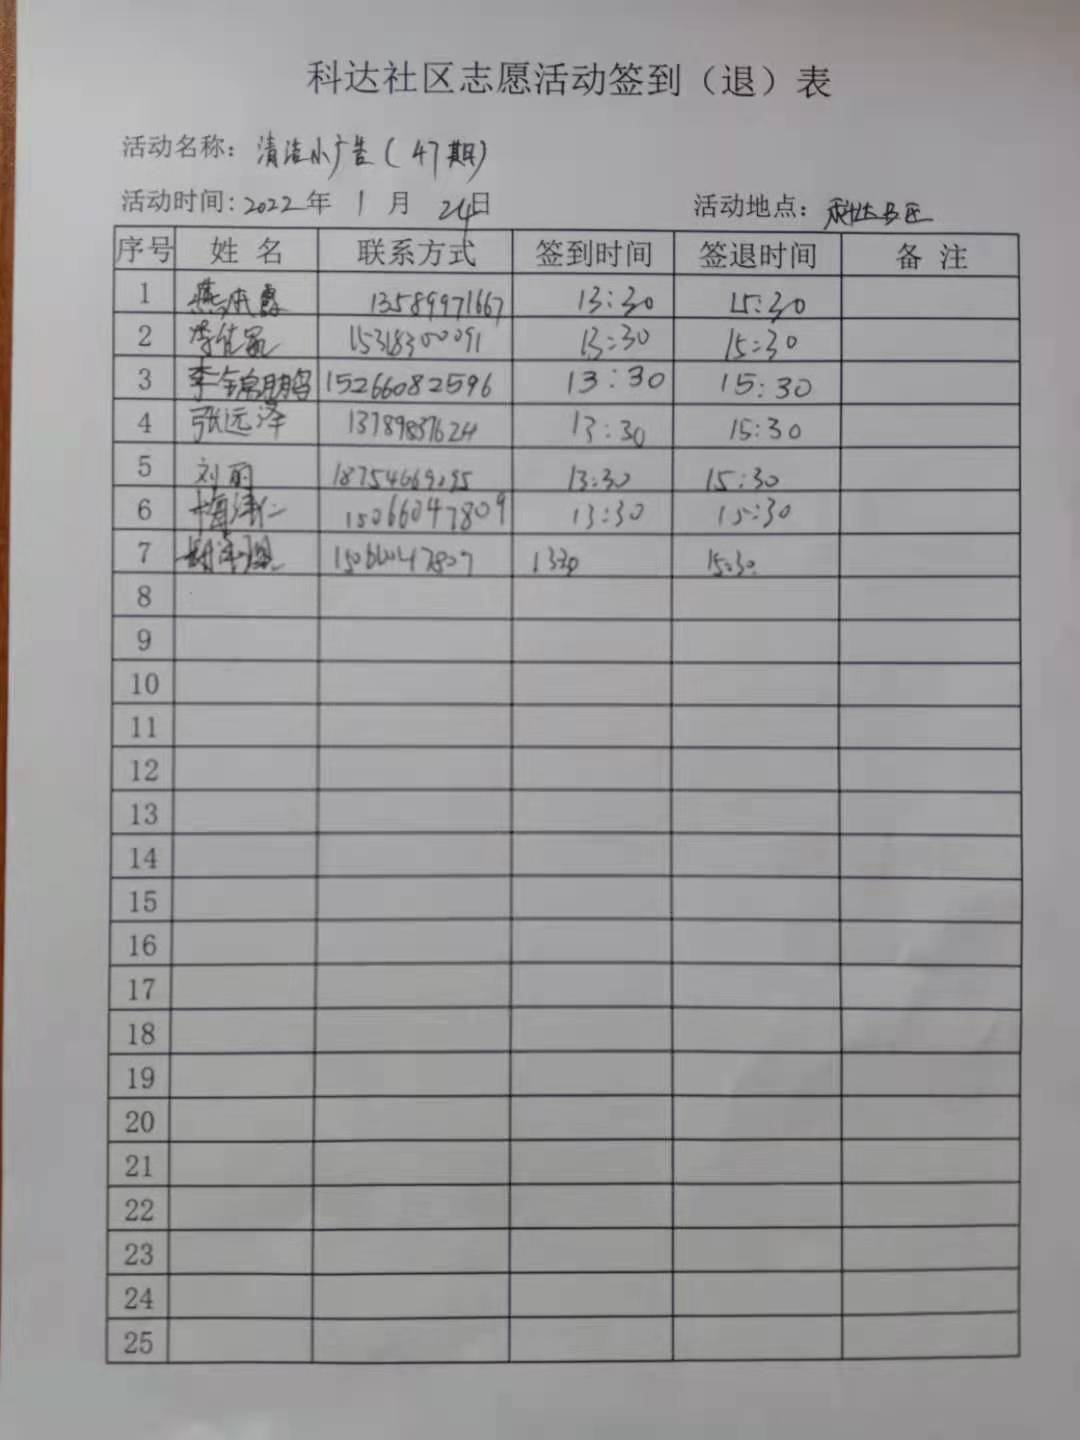 科达社区志愿活动签到（退）表
活动名称：清洁小广告（47期）
活动时间：2022年 1月 24日 活动地点：科达社区
序号 姓 名 联系方式 签到时间 签退时间 备 注
1 13589971667 13:30 15:30
2 15318300091 13:30 15:30
3 李锦鹏 15266082596 13:30 15:30
4 张远泽 13789837624 13:30 15:30
5 刘丽 13:30 15:30
6 15066047809 13:30 15:30
7 1330 15:30
8
9
10
11
12
13
14
15
16
17
18
19
20
21
22
23
24
25